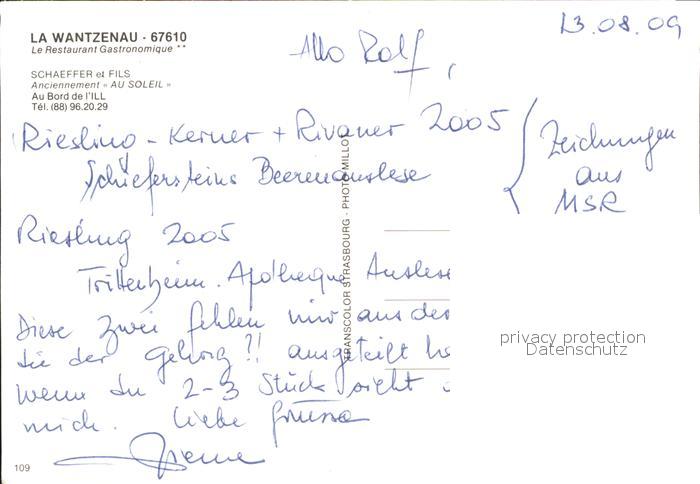 LA WANTZENAU - 67610
Le Restaurant Gastronomique **
SCHAEFFER et FILS
Anciennement « AU SOLEIL »
Au Bord de l'ILL
Tél. (88) 96.20.29
13.08.09
Allo Rolf,
Riesling - Kerner + Rivaner 2005
Schiefersteins Beerenauslese
Zeichnungen
aus
MSR
Riesling 2005
Trittenheim. Apotheque Auslese
Diese zwei fehlen mir aus der
die der Gehörig?! ausgeteilt
wenn du 2-3 Stück
mich. Liebe Grüsse
TRANSCOLOR STRASBOURG - PHOTO MILLOT
privacy protection
Datenschutz
109